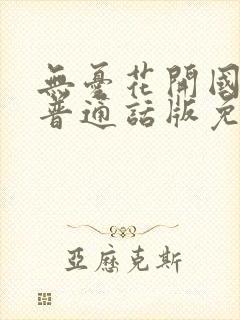 無憂花開國
普通話版免
亞歷克斯